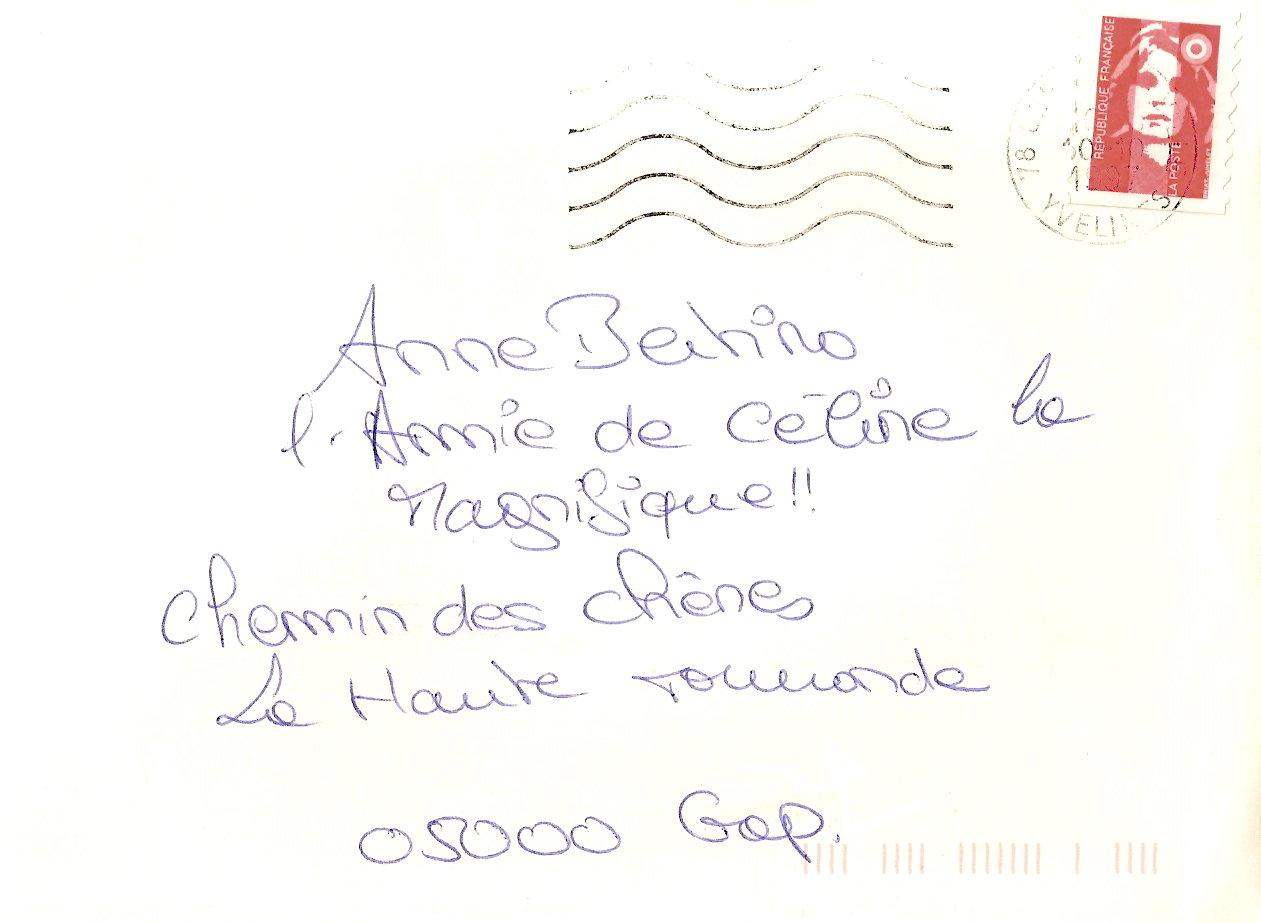 RÉPUBLIQUE FRANÇAISE
LA POSTE
18
YVELINES
Anne
l'Amie de Céline la
Magnifique!!
Chemin des chênes
La Haute
05000 Gap.